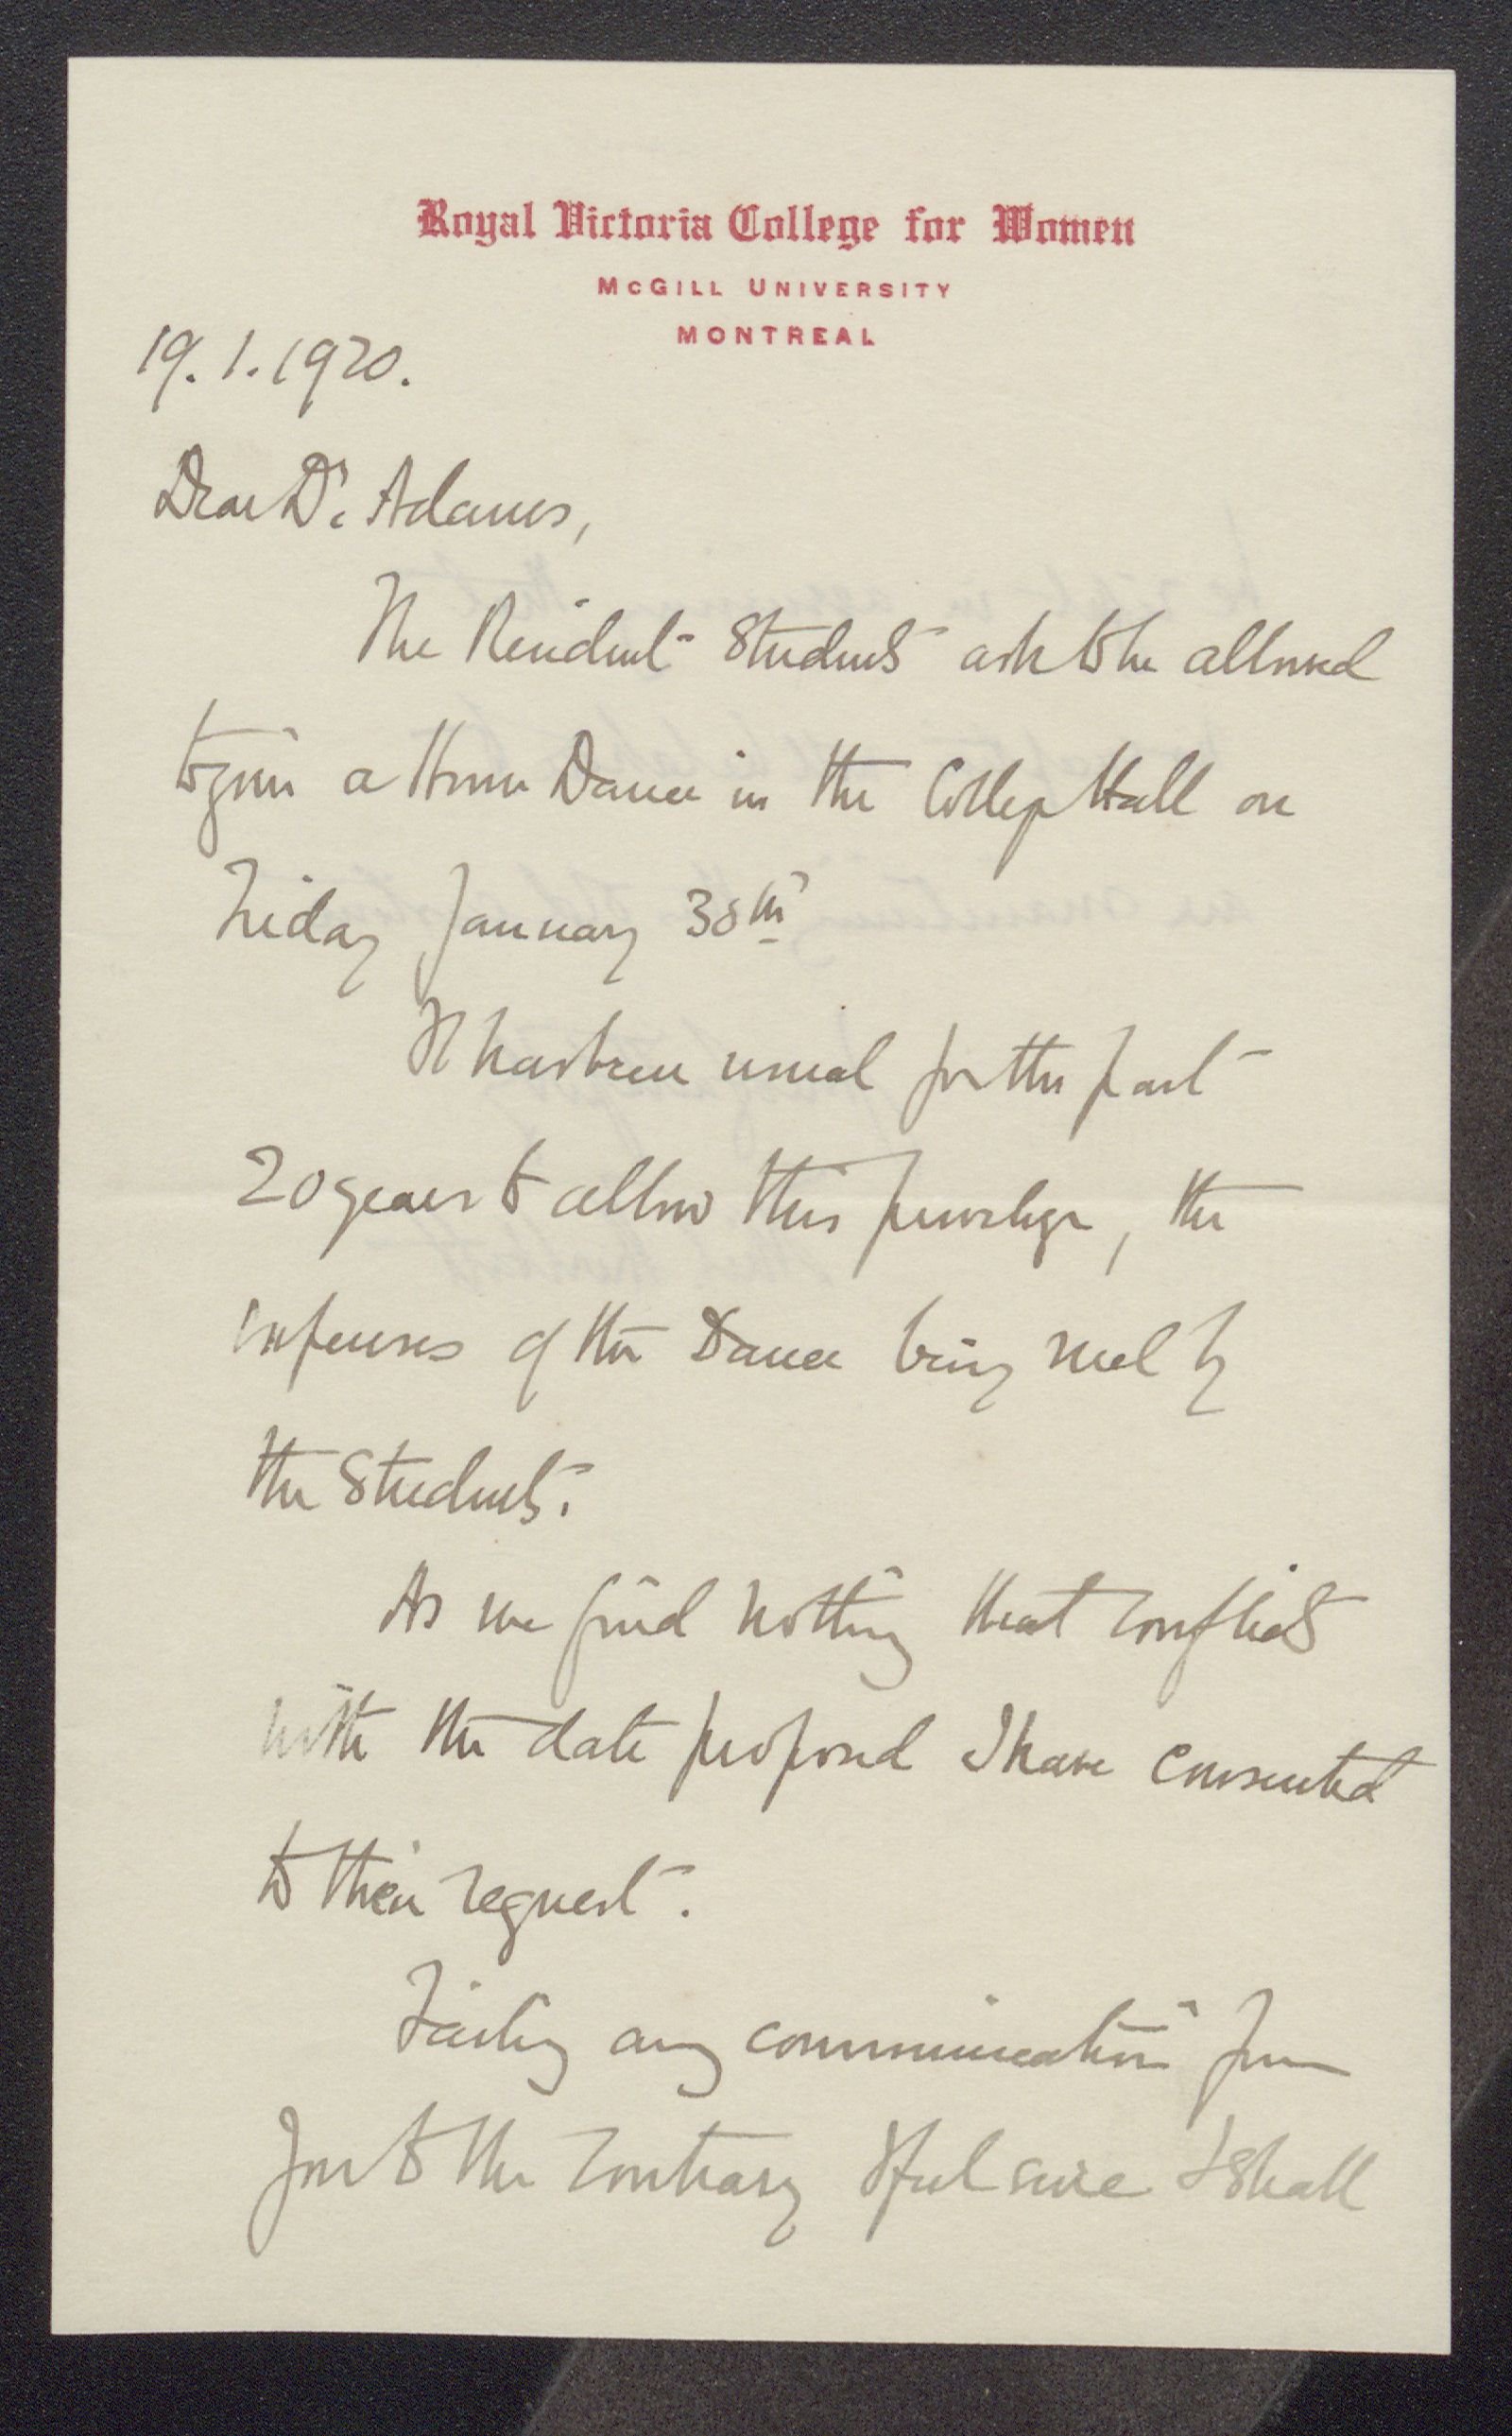 Royal Victoria College for Women
McGILL UNIVERSITY
MONTREAL
19. 1. 1920.
Dear Dr. Adams,
The Resident Students ask to be allowed
to give a Home Dance in the College Hall on
Friday January 30th
It has been usual for the past
20 years to allow this privilege, the
expenses of the Dance being met by
the Students.
As we find nothing that conflicts
with the date proposed I have consented
to their request.
Failing any communication from
you to the contrary I feel sure I shall